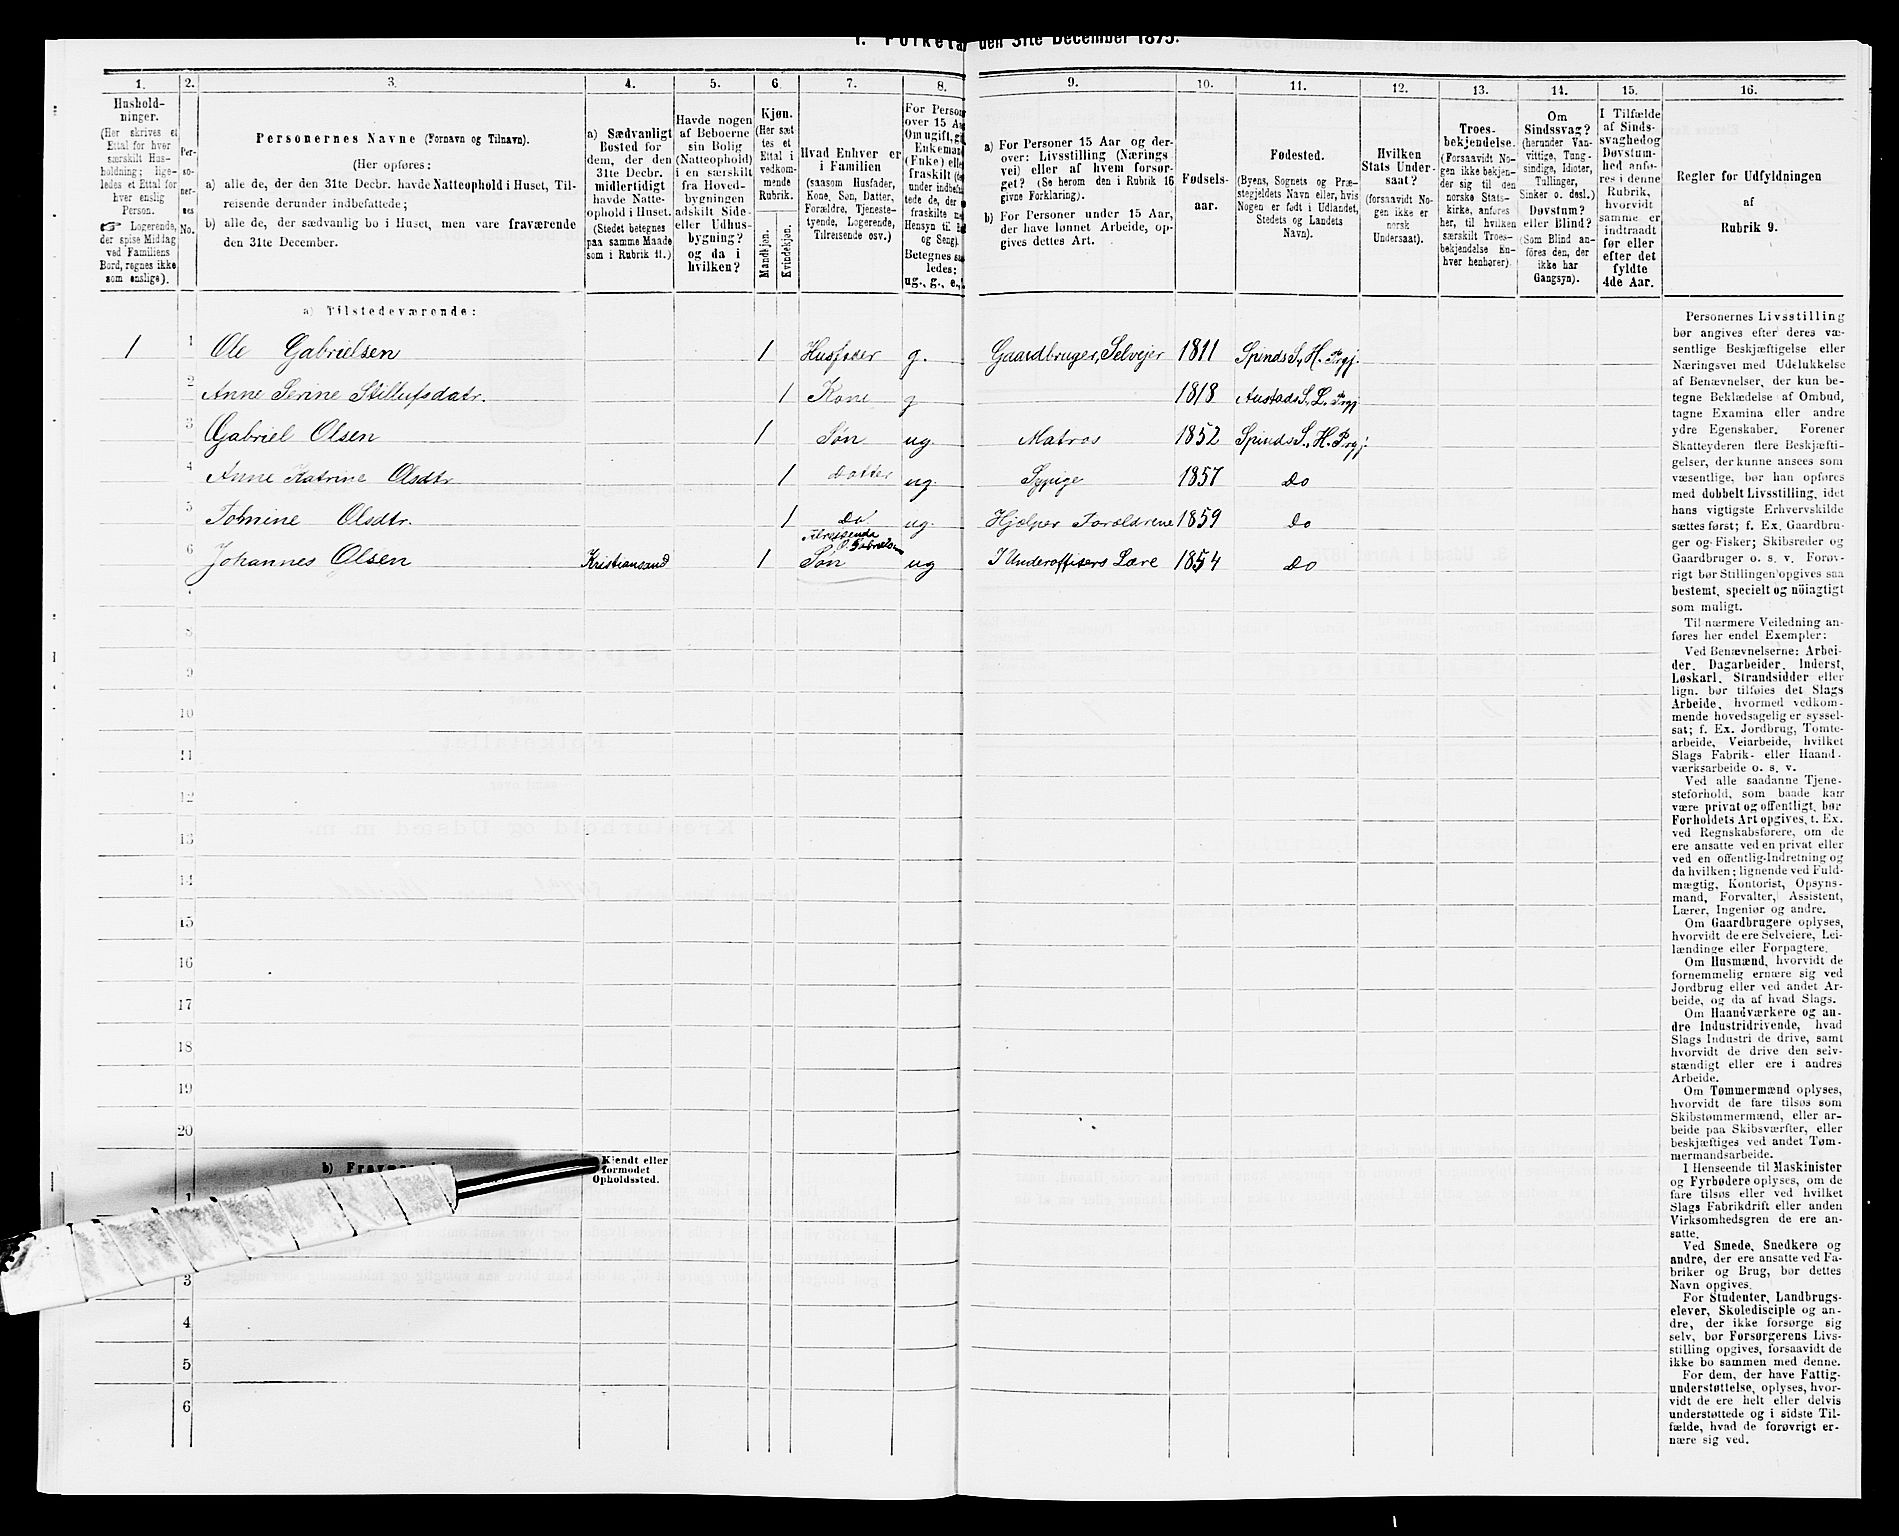 den 31te December 1875.
1.
Hushold-
ninger.
(Her skrives et
Ettal for hver
særskilt Hus-
holdning; lige-
ledes et Ettal for
hver enslig
Person.
☞ Logerende,
der spise Middag
ved Familiens
Bord, regnes ikke
som enslige).
2.
Per-
so-
ner-
nes
No.
3.
Personernes Navne (Fornavn og Tilnavn).
(Her opføres:
a) alle de, der den 31te Decbr. havde Natteophold i Huset, Til-
reisende derunder indbefattede;
b) alle de, der sædvanlig bo i Huset, men vare fraværende
den 31te December.
4.
a) Sædvanligt
Bosted for
dem, der den
31te Decbr.
midlertidigt
havde Natte-
ophold i Huset.
(Stedet betegnes
paa samme Maade
som i Rubrik 11.)
5.
Havde nogen
af Beboerne
sin Bolig
(Natteophold)
i en særskilt
fra Hoved-
bygningen
adskilt Side-
eller Udhus-
bygning?
og da i
hvilken?
6.
Kjøn.
(Her sæt-
tes et
Ettal i
vedkom-
mende
Rubrik.
Mandkjøn.
Kvindekjøn.
7.
Hvad Enhver er
i Familien
(saasom Husfader,
Kone, Søn, Datter,
Forældre, Tjeneste-
tyende, Logerende,
Tilreisende osv.)
8.
For Person
over 15 A
Om ugift, gi
Enkeman
(Enke) elle
fraskilt
under indbef
tede de, der
fraskilte
Hensyn til
og Seng).
Betegnes
ledes:
ug., g., e.,
9.
a) For Personer 15 Aar og der-
over: Livsstilling (Nærings
vei) eller af hvem forsør-
get? (Se herom den i Rubrik 16
givne Forklaring).
b) For Personer under 15 Aar,
der have lønnet Arbeide, op-
gives dettes Art.
10.
Fødsels-
aar.
11.
Fødested.
(Byens, Sognets og Præ-
stegjeldets Navn eller, hvis
Nogen er født i Udlandet,
Stedets og Landets
Navn).
12.
Hvilken
Stats Under-
saat?
(forsaavidt No-
gen ikke er
norsk
Undersaat).
13.
Troes-
bekjendelse.
(Forsaavidt No-
gen ikke bekjen-
der sig til den
norske Stats-
kirke, anføres
her, til hvilken
særskilt Troes-
bekjendelse En-
hver henhører).
14.
Om
Sindssvag?
(herunder Van-
vittige, Tung-
sindige, Idioter,
Tullinger,
Sinker o. desl.)
Døvstum?
eller Blind?
(Som Blind an-
føres den, der
ikke har
Gangsyn).
15.
I Tilfælde
af Sinds-
svaghed og
Døvstum-
hed anfø-
res i denne
Rubrik,
hvorvidt
samme er
indtraadt
før eller
efter det
fyldte
4de Aar.
16.
Regler for Udfyldningen
af
Rubrik 9.
a) Tilstedeværende:
1 1 Ole Gabrielsen 1 Husfader g. Gaardbruger, Selvejer 1811 Spinds S., H. Prgj.
2 Anne Serine Stillufsdatr. 1 Kone g 1818 Austads S. L. Prgj
3 Gabriel Olsen 1 Søn ug Matros 1852 Spinds S., H. Prgj
4 Anne Katrine Olsdtr 1 Datter ug. Sypige 1857 Do
5 Tomine Olsdtr. 1 Do ug. Hjælper Forældrene 1859 Do
6 Johannes Olsen Kristiansand 1 Tilreisende O. Gabrielsen Søn ug I Underoffisers Lære 1854 Do
7
8
9
10
11
12
13
14
15
16
17
18
19
20
b)
Kjendt eller
formodet
Opholdssted.
1
3
4
5
6
Personernes Livsstilling
bør angives efter deres væ-
sentlige Beskjæftigelse eller
Næringsvei med Udelukkelse
af Benævnelser, der kun be-
tegne Beklædelse af Ombud,
tagne Examina eller andre
ydre Egenskaber. Forener
Skatteyderen flere Beskjæfti-
gelser, der kunne ansees som
væsentlige, bør han opføres
med dobbelt Livsstilling, idet
hans vigtigste Erhvervskilde
sættes først; f. Ex. Gaardbru-
ger og Fisker; Skibsreder og
Gaardbruger o. s. v. Forøv-
rigt bør Stillingen opgives saa
bestemt, specielt og nöiagtigt
som muligt.
Til nærmere Veiledning an-
føres her endel Exempler:
Ved Benævnelserne: Arbei-
der, Dagarbeider, Inderst,
Løskarl, Strandsidder eller
lign. bør tilføies det Slags
Arbeide, hvormed vedkom-
mende hovedsagelig er syssel-
sat; f. Ex. Jordbrug, Tomte-
arbeide, Veiarbeide, hvilket
Slags Fabrik- eller Haand-
værksarbeide o. s. v.
Ved alle saadanne Tjene-
steforhold, som baade kan
være privat og offentligt, bør
Forholdets Art opgives, t. Ex.
ved Regnskabsførere, om de
ere ansatte ved en privat eller
ved en offentlig Indretning og
da hvilken; lignende ved Fuld-
mægtig, Kontorist, Opsyns-
mand, Forvalter, Assistent,
Lærer, Ingeniør og andre.
Om Gaardbrugere oplyses,
hvorvidt de ere Selveiere, Lei-
lændinge eller Forpagtere.
Om Husmænd, hvorvidt de
fornemmelig ernære sig ved
Jordbrug eller ved andet Ar-
beide, og da af hvad Slags.
Om Haandværkere og an-
dre Industridrivende, hvad
Slags Industri de drive, samt
hvorvidt de drive den selv-
stændigt eller ere i andres
Arbeide.
Om Tømmermænd oplyses,
hvorvidt de fare tilsøs som
Skibstømmermænd, eller ar-
beide paa Skibsværfter, eller
beskjæftiges ved andet Tøm-
mermandsarbeide.
I Henseende til Maskinister
og Fyrbødere oplyses, om de
fare tilsøs eller ved hvilket
Slags Fabrikdrift eller anden
Virksomhedsgren de ere an-
satte.
Ved Smede, Snedkere og
andre, der ere ansatte ved Fa-
briker og Brug, bør dettes
Navn opgives.
For Studenter, Landbrugs-
elever, Skoledisciple og an-
dre, der ikke forsørge sig
selv, bør Forsørgerens Livs-
stilling opgives, forsaavidt de
ikke bo sammen med denne.
For dem, der have Fattig-
understøttelse, oplyses, hvor-
vidt de ere helt eller delvis
understøttede og i sidste Til-
fælde, hvad de forøvrigt er-
nære sig ved.